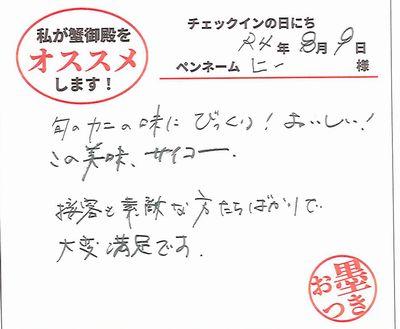 私が蟹御殿を
オススメ
します!
チェックインの日にち
R4年8月9日
ペンネーム ヒー 様
旬のカニの味にびっくり!おいしい!
この美味、サイコー.
接客も素敵な方たちばかりで、
大変満足です.
お墨つき